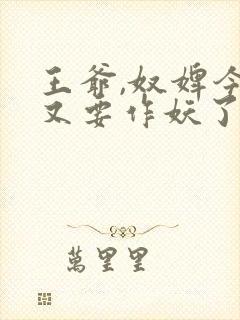 王爷,奴婢今
又要作妖了
萬里里